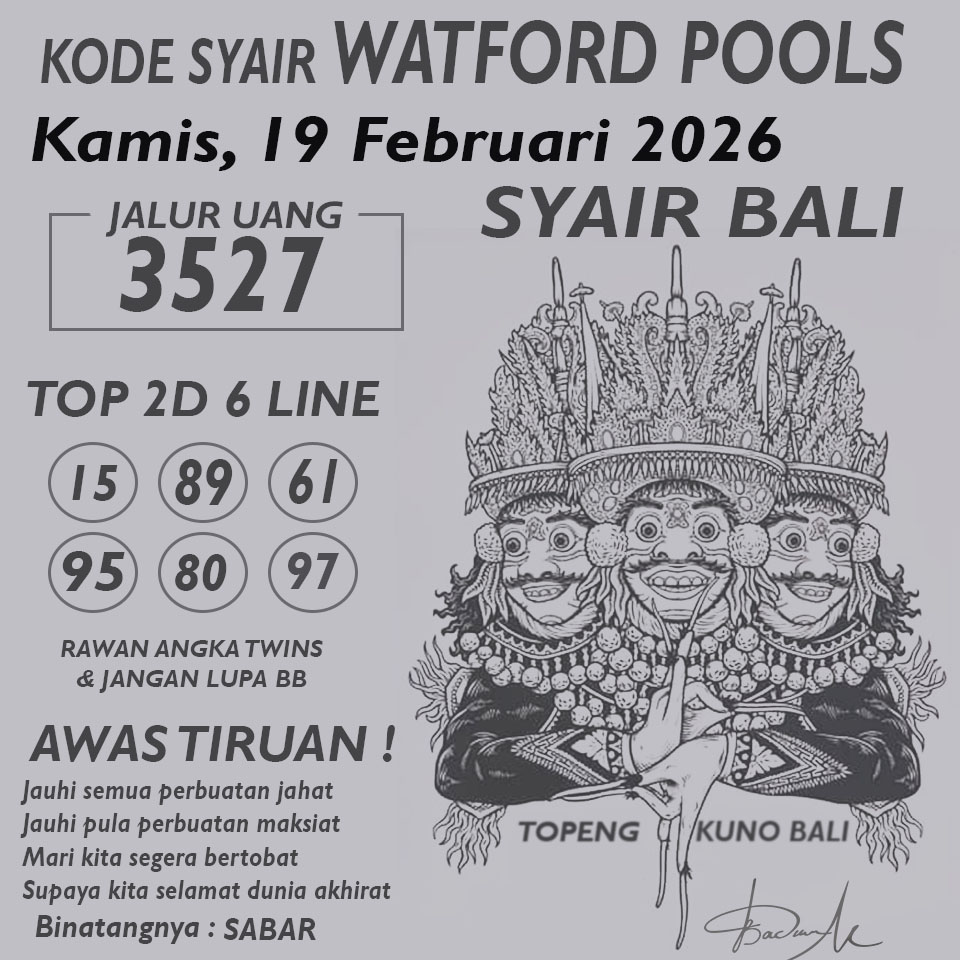 KODE SYAIR WATFORD POOLS
Kamis, 19 Februari 2026
SYAIR BALI
JALUR UANG
3527
TOP 2D 6 LINE
15 89 61
95 80 97
RAWAN ANGKA TWINS
& JANGAN LUPA BB
AWAS TIRUAN !
Jauhi semua perbuatan jahat
Jauhi pula perbuatan maksiat
Mari kita segera bertobat
Supaya kita selamat dunia akhirat
Binatangnya : SABAR
TOPENG KUNO BALI